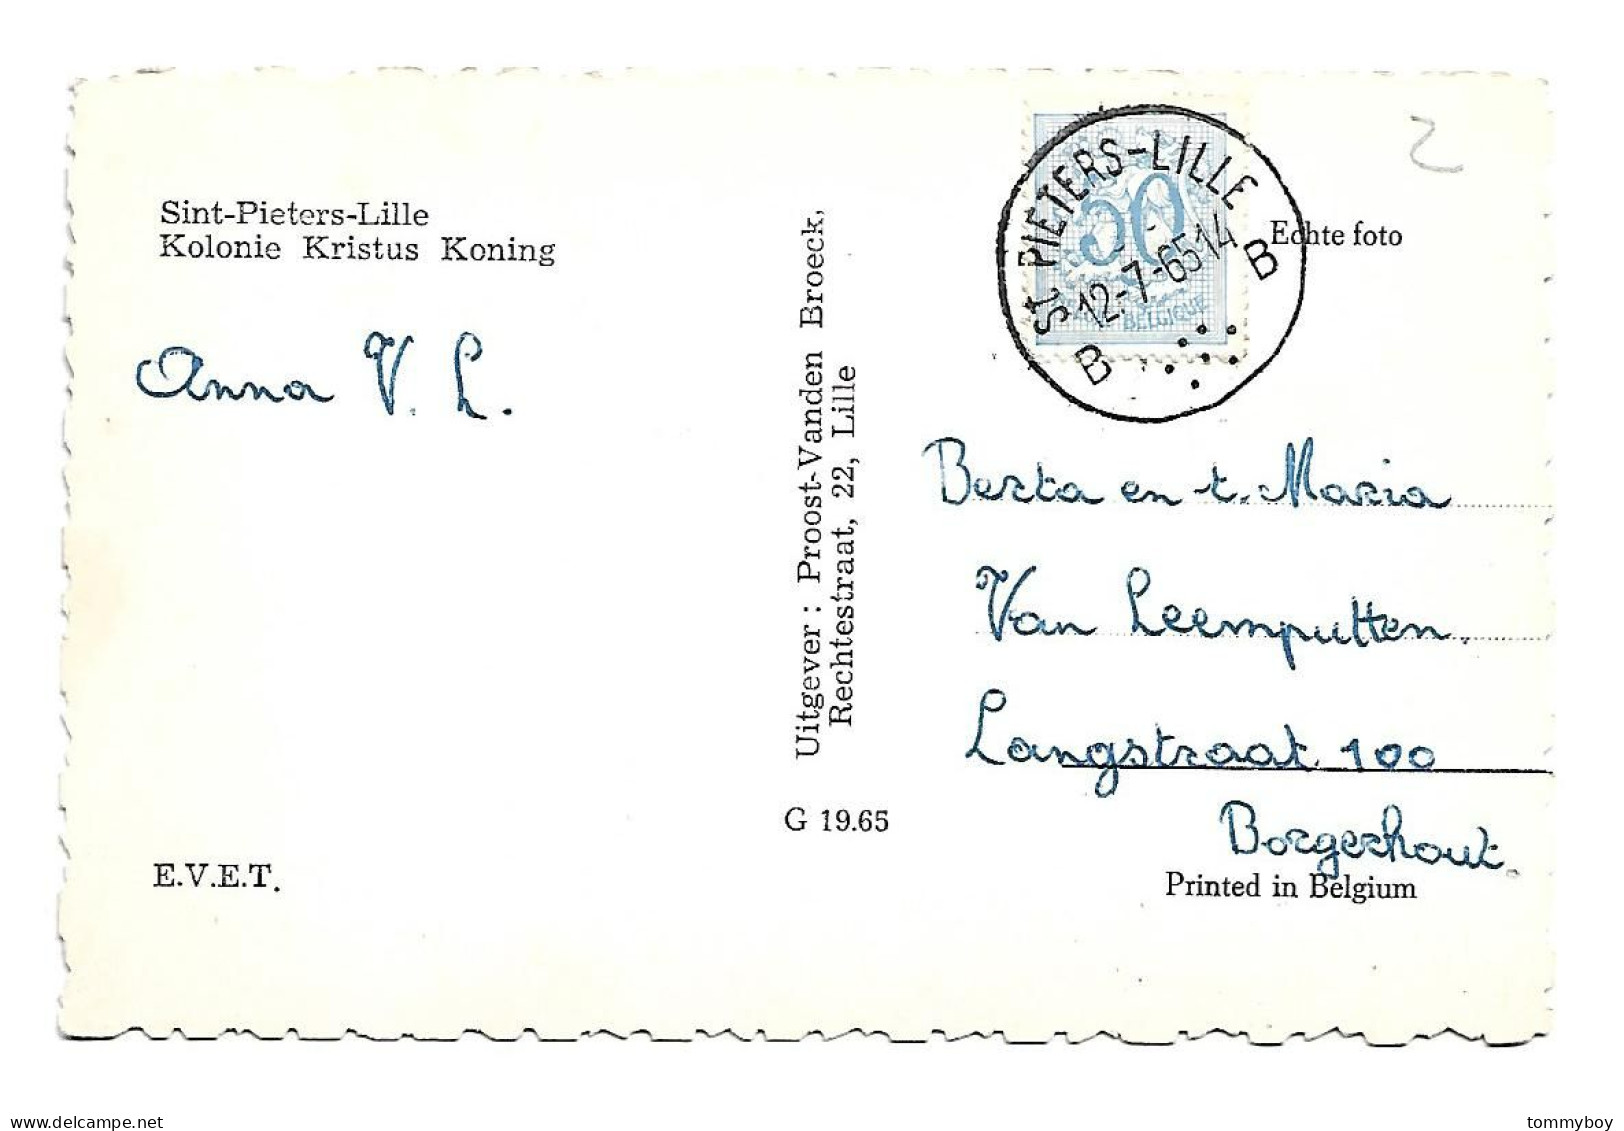 Sint-Pieters-Lille
Kolonie Kristus Koning
Anna V. L.
E.V.E.T.
Uitgever : Proost-Vanden Broeck,
Rechtestraat, 22, Lille
G 19.65
2
50
BELGIQUE
ST PIETERS-LILLE
12-7-65 14
B
B
Echte foto
Berta en t. Maria
Van Leemputten.
Langstraat 100
Borgerhout.
Printed in Belgium
www.delcampe.net
tommyboy